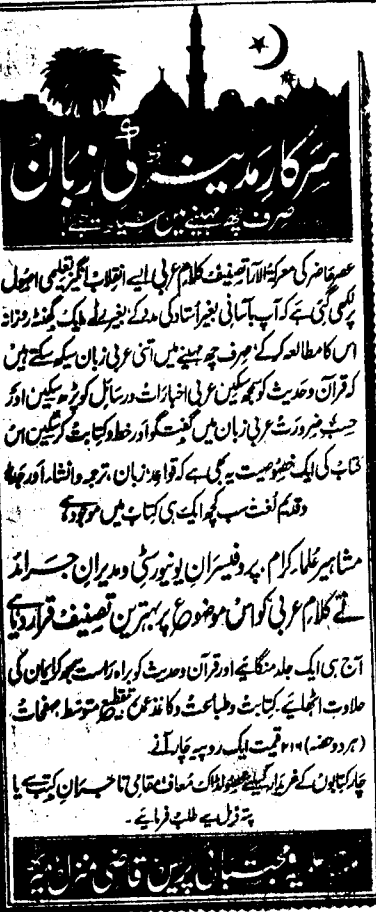 سرکارِ مدینہ کی زبان
صرف چھ مہینے میں سیکھ لیجئے!
عصرِ حاضر کی معرکۃ الآرا تصنیف کلامِ عربی ایسے انقلاب انگیز تعلیمی اصول
پر لکھی گئی ہے کہ آپ بآسانی بغیر اُستاد کی مدد کے بغیر رٹے ایک گھنٹہ روزانہ
اس کا مطالعہ کر کے صرف چھ مہینے میں اتنی عربی زبان سیکھ سکتے ہیں
کہ قرآن و حدیث کو سمجھ سکیں عربی اخبارات و رسائل کو پڑھ سکیں اور
حسبِ ضرورت عربی زبان میں گفتگو اور خط و کتابت کر سکیں اس
کتاب کی ایک خصوصیت یہ بھی ہے کہ قواعدِ زبان، ترجمہ و انشاء اور جدید
و قدیم لغت سب کچھ ایک ہی کتاب میں موجود ہے
مشاہیر علماء کرام، پروفیسرانِ یونیورسٹی و مدیرانِ جرائد
نے کلامِ عربی کو اس موضوع پر بہترین تصنیف قرار دیا ہے
آج ہی ایک جلد منگائیے اور قرآن و حدیث کو براہ راست سمجھ کر ایمان کی
حلاوت اٹھائیے۔ کتابت و طباعت و کاغذ عمدہ تقطیع متوسط صفحات
(ہر دو حصہ) ۲۱۶ قیمت ایک روپیہ چار آنے
چار کتابوں کے خریدار کیلئے محصولڈاک معاف مقامی تاجرانِ کتب سے یا
پتہ ذیل سے طلب فرمائیے۔
علمیہ مجتبائی پریس قاضی منزل